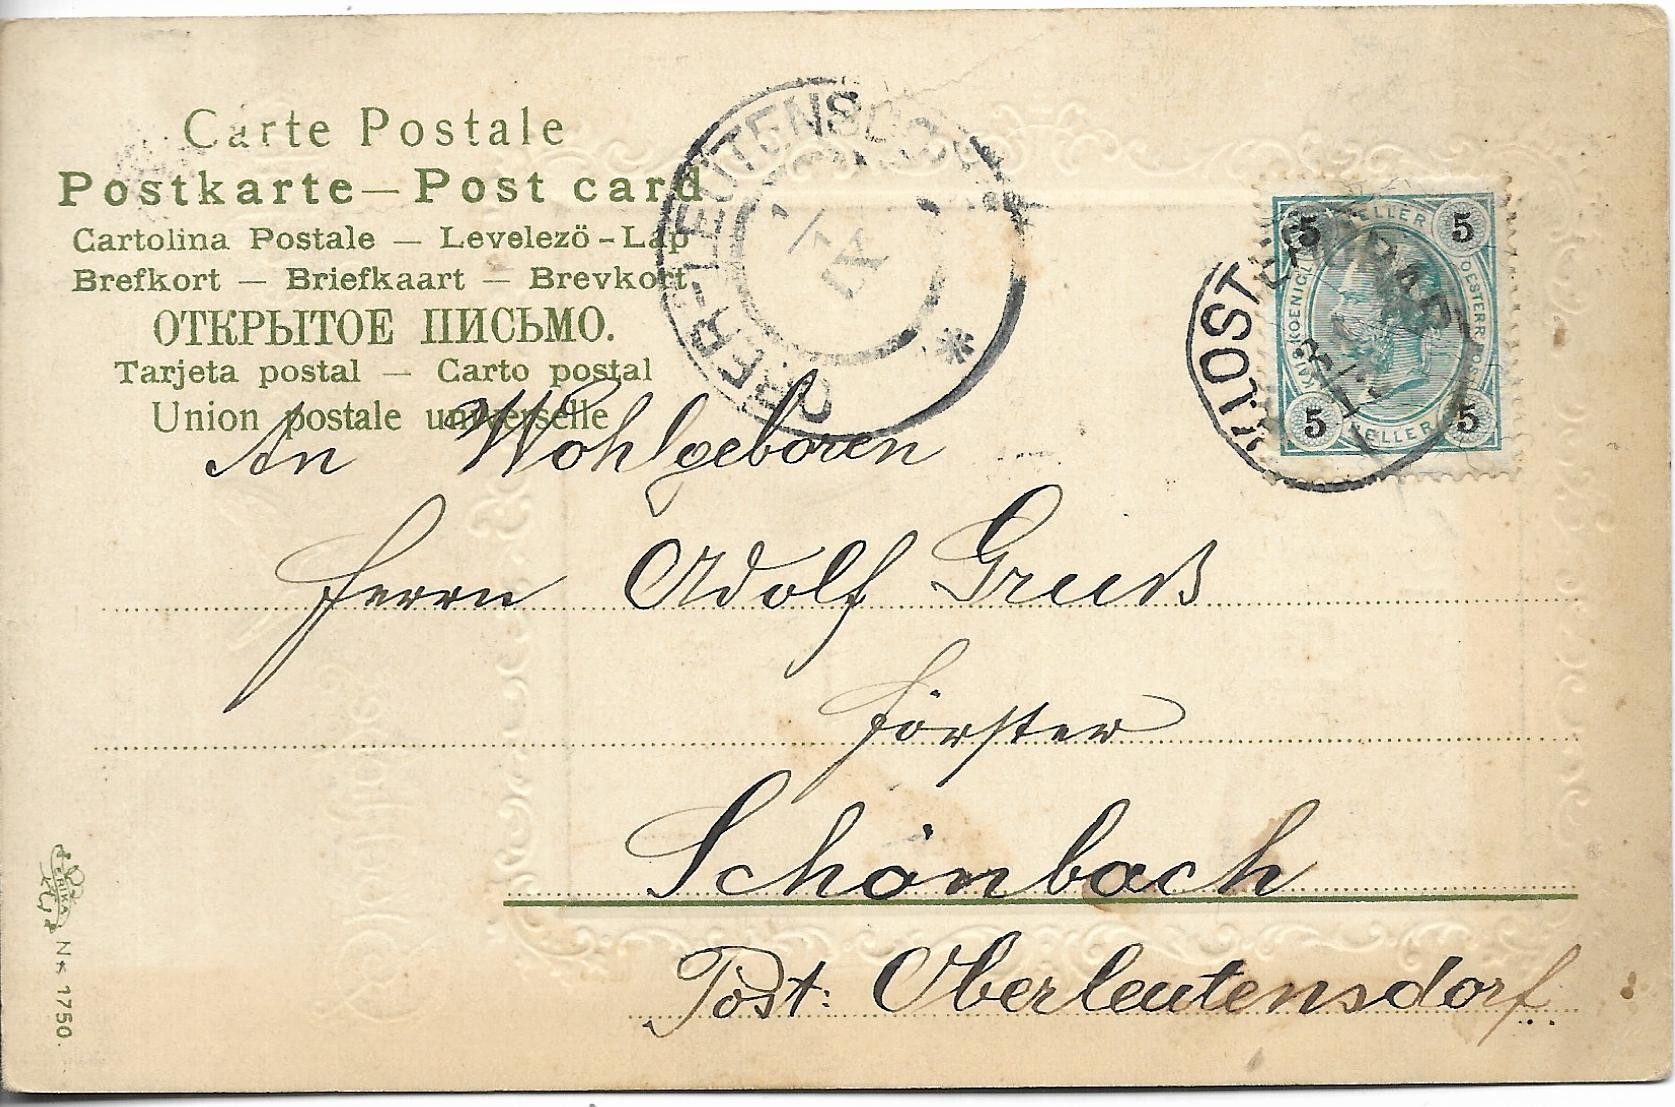 Carte Postale
Postkarte — Post card
Cartolina Postale — Levelezö-Lap
Brefkort — Briefkaart — Brevkort
ОТКРЫТОЕ ПИСЬМО.
Tarjeta postal — Carto postal
Union postale universelle
OBER-LEUTENSDORF
5 HELLER 5
5 HELLER 5
KLOSTERGRAB
An Wohlgeboren
Herrn Adolf Gruß
Förster
Schönbach
Post: Oberleutensdorf
ERIKA
No 1750.